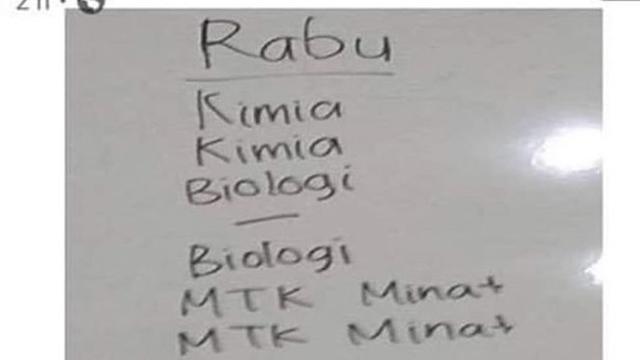 Rabu
Kimia
Kimia
Biologi
Biologi
MTK Minat
MTK Minat